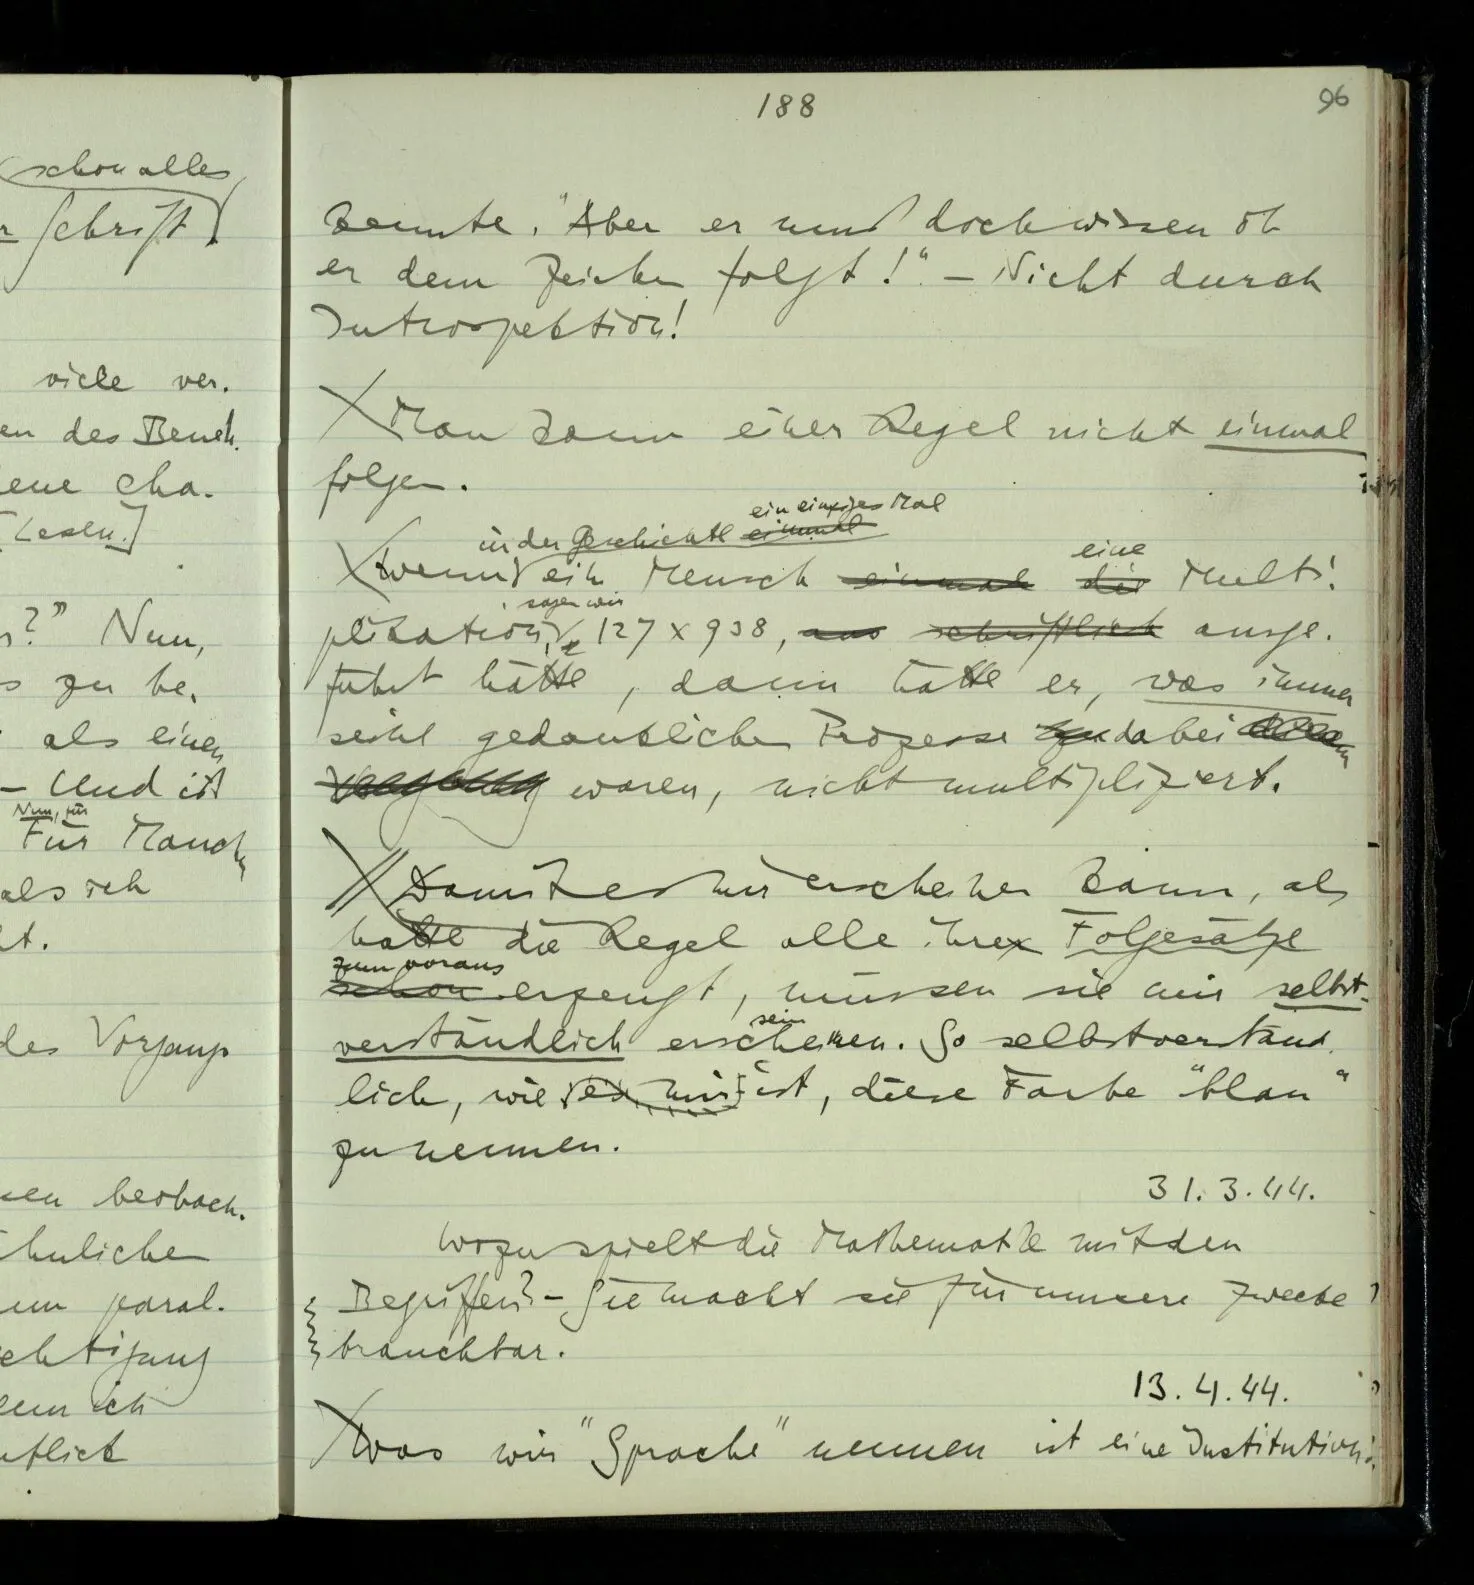 188
96
schon alles
Schrift
viele ver-
en des Beneh-
ene Cha-
Lesen.]
?" Nun,
zu be-
als einen
– Und ist
Nun, für
Für Manch
als ich
des Vorgangs
nen beobach-
ähnliche
paral-
ich
kannte. "Aber er muß doch wissen ob
er dem Zeichen folgt!" – Nicht durch
Introspektion!
Man kann einer Regel nicht einmal
folgen.
ein einziges Mal
in der Geschichte einmal
eine
Wenn ein Mensch einmal die Multi-
sagen wir
plikation, 127 x 938, schriftlich ausge-
führt hätte, dann hätte er, was immer
seine gedanklichen Prozesse dabei
waren, nicht multipliziert.
Damit es mir erscheinen kann, als
hätte die Regel alle ihre Folgesätze
zum voraus
schon erzeugt, müssen sie mir selbst-
sein
verständlich erscheinen. So selbstverständ-
lich, wie es mir ist, diese Farbe "blau"
zu nennen.
31.3.44.
Wozu spielt die Mathematik mit den
Begriffen? – Sie macht sie für unsere Zwecke
brauchbar.
13.4.44.
Was wir "Sprache" nennen ist eine Institution